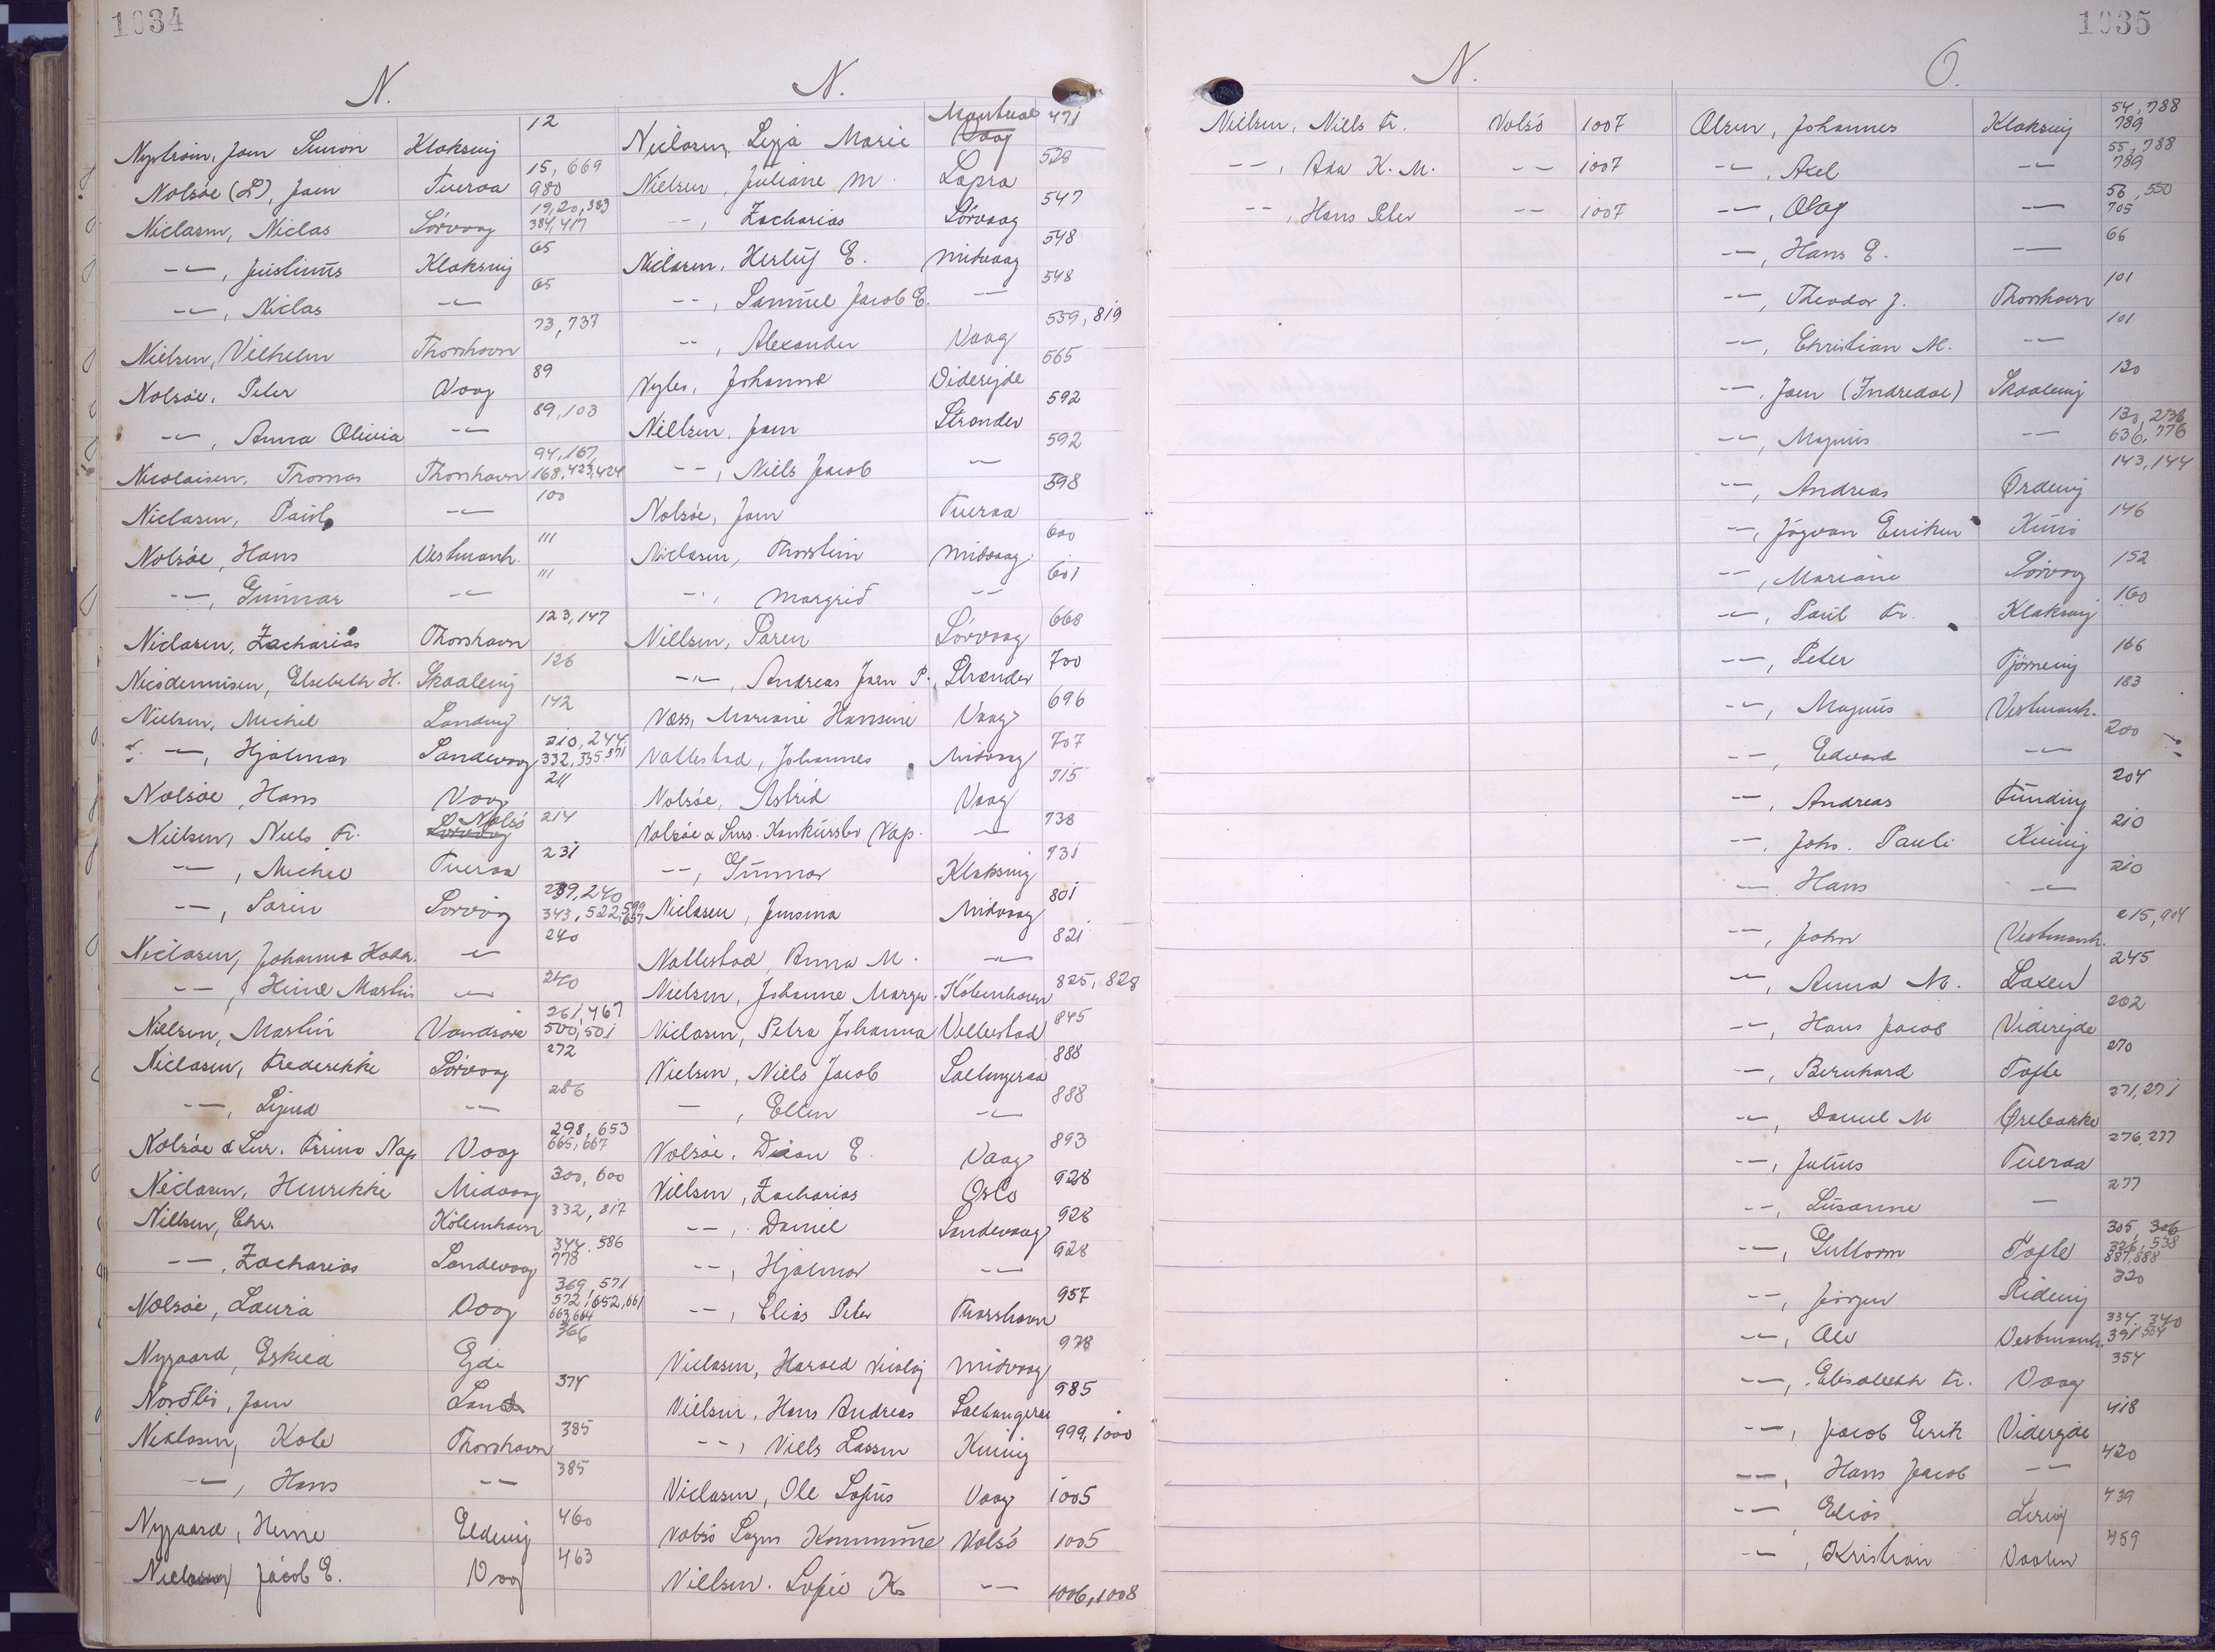 1034
N.
Nystrøm, Joen Simon Klaksvig 12
Nolsøe (L), Joen Tveraa 15, 669 980
Niclasen, Niclas Sörvaag 19, 20, 383 384, 417
-"-, Justinus Klaksvig 65
-"-, Niclas -"- 65
Nielsen, Vilhelm Thorshavn 73, 737
Nolsøe, Peter Vaag 89
-"-, Anna Olivia -"- 89, 103
Nicolaisen, Thomas Thorshavn 94, 167, 168, 423, 424
Niclasen, Paul -"- 100
Nolsøe, Hans Vestmanh. 111
-"-, Gunnar -"- 111
Niclasen, Zacharias Thorshavn 123, 147
Nicodemusen, Elsebeth H. Skaalevig 126
Nielsen, Michel 142
-"-, Hjalmar Sandevaag 210, 244 332, 335, 571
Nolsøe, Hans Vaag 211
Nielsen, Niels Fr. Nolsö 214
-"-, Michel Tveraa 231
-"-, Sörin Sörvaag 239, 240 343, 522, 599, 657
Niclasen, Johanna -"- 240
-"-, Heine Martin -"- 240
Nielsen, Martin 261, 467 500, 501
Niclasen, Frederikke Sörvaag 272
-"-, Ligurd -"- 286
Nolsøe & Sur. Firma Nap Vaag 298, 653 665, 667
Niclasen, Henrikke Midvaag 300, 600
Nielsen, Chr. Köbenhavn 332, 817
-"-, Zacharias Sandevaag 344, 586 778
Nolsøe, Laura Vaag 369, 571 572, 652, 661 663, 664
Nygaard, Eskild Ejde 366
Nordli, Joen Sand 374
Niclasen, Kole Thorshavn 385
-"-, Hans -"- 385
Nygaard, Heine Eldevig 460
Niclasen, Jacob E. Vaag 463
N.
Niclasen, Marie Vaag 471
Nielsen, Juliane M. Lopra 528
-"-, Zacharias Sörvaag 547
Niclasen, Herluf E. Midvaag 548
-"-, Samuel Jacob E. -"- 548
-"-, Alexander Vaag 559, 819
Johanna Viderejde 565
Nielsen, Joen Strender 592
-"-, Niels Jacob -"- 592
Nolsøe, Joen Tveraa 598
Niclasen, Thorstein Midvaag 600
-"-, Margrid -"- 601
Nielsen, Sören Sörvaag 668
-"-, Andreas Joen P. Strender 700
Næss, Mariane Hansine Vaag 696
Nattestad, Johannes Midvaag 707
Nolsøe, Astrid Vaag 715
Nolsøe & Surs. Konkursbo Vap. -"- 738
-"-, Gunnar Klaksvig 731
Niclasen, Jensina Midvaag 801
Nattestad, Anna M. -"- 821
Nielsen, Johanne Margr. Köbenhavn 825, 828
Niclasen, Petra Johanna Vellestad 845
Nielsen, Niels Jacob Saltangeraa 888
-"-, Ellen -"- 888
Nolsøe, Dion E. Vaag 893
Nielsen, Zacharias Oslo 928
-"-, Daniel Sandevaag 928
-"-, Hjalmar -"- 928
-"-, Elias Peter Thorshavn 957
Niclasen, Harald Nicolaj Midvaag 978
Nielsen, Hans Andreas Saltangeraa 985
-"-, Niels Lassen Kunoy 999, 1000
Niclasen, Ole Sofus Vaag 1005
Nolsö Sogns Kommune Nolsö 1005
Nielsen, Sofie K. -"- 1006, 1008
1035
N.
Nielsen, Niels Fr. Nolsö 1007
-"-, Ada K. M. -"- 1007
-"-, Hans Peter -"- 1007
O.
Olsen, Johannes Klaksvig 54, 788 789
-"-, Axel -"- 55, 788 789
-"-, Olaf -"- 56, 550 705
-"-, Hans E. -"- 66
-"-, Theodor J. Thorshavn 101
-"-, Christian M. -"- 101
-"-, Joen (Indredal) Skaalevig 130
-"-, Magnus -"- 130, 236 636, 776
-"-, Andreas Ördevig 143, 144
-"-, Jógvan Eiriken Kunö 146
-"-, Mariane Sörvaag 152
-"-, Paul Fr. Klaksvig 160
-"-, Peter Tjörnevig 166
-"-, Magnus Vestmanh. 183
-"-, Edvard -"- 200
-"-, Andreas Funding 204
-"-, Johs. Pauli Kvivig 210
-"- Hans -"- 210
-"-, John Vestmanh. 215, 904
-"-, Anna M. Saxen 245
-"-, Hans Jacob Viderejde 202
-"-, Bernhard Tofte 270
-"-, Daniel M Örebakke 271, 271
-"-, Julius Tveraa 276, 277
-"-, Susanne - 277
-"-, Guttorm Tofte 305, 306 326, 538 887, 888
-"-, Jörgen Ridevig 320
-"-, Ole Vestmanh. 334, 340 391, 504
-"-, Elisabeth Fr. Vaag 354
-"-, Jacob Erik Viderejde 418
-"-, Hans Jacob -"- 420
-"- Elias Lervig 439
-"-, Kristian 459